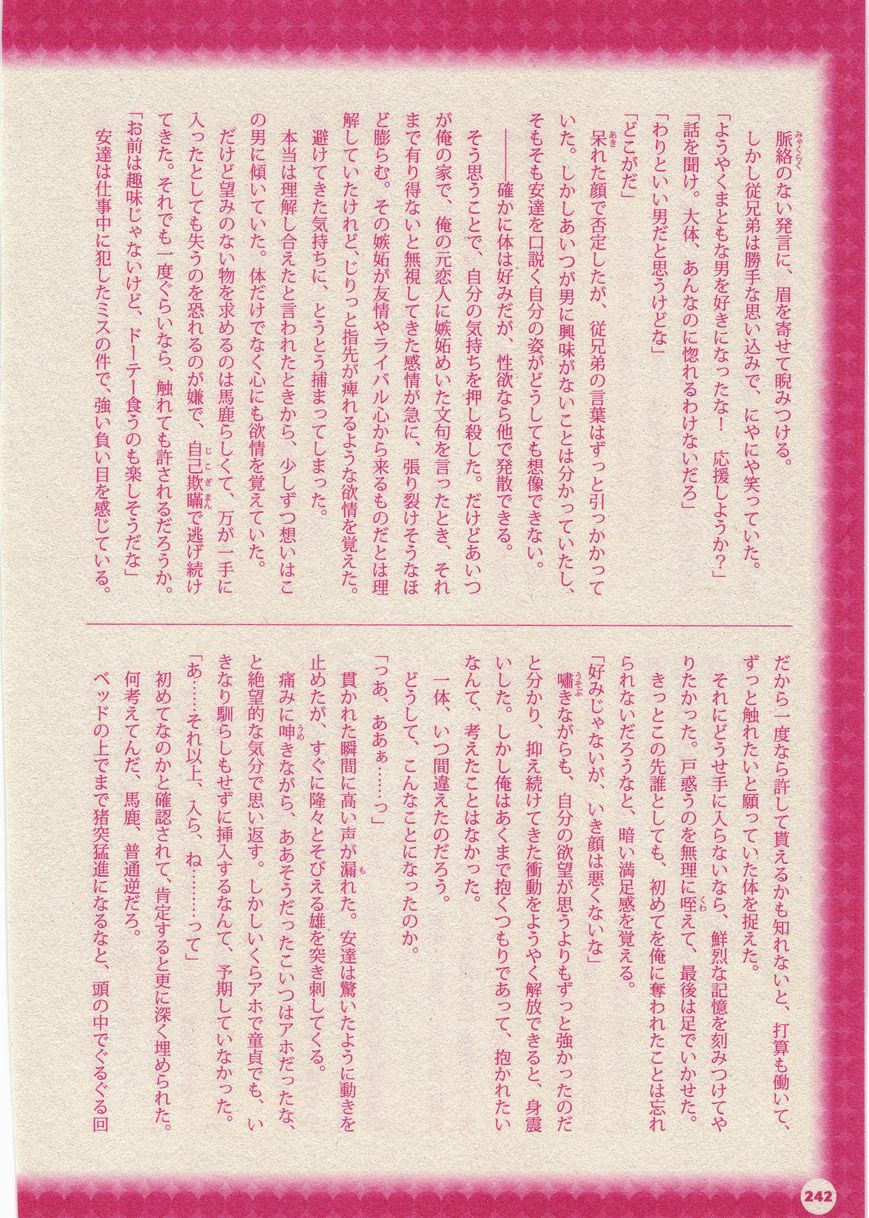 みゃくらく
脈絡のない発言に、眉を寄せて睨みつける。
しかし従兄弟は勝手な思い込みで、にやにや笑っていた。
「ようやくまともな男を好きになったな！　応援しようか？」
「話を聞け。大体、あんなのに惚れるわけないだろ」
「わりといい男だと思うけどな」
「どこがだ」
あき
呆れた顔で否定したが、従兄弟の言葉はずっと引っかかって
いた。しかしあいつが男に興味がないことは分かっていたし、
そもそも安達を口説く自分の姿がどうしても想像できない。
――確かに体は好みだが、性欲なら他で発散できる。
そう思うことで、自分の気持ちを押し殺した。だけどあいつ
が俺の家で、俺の元恋人に嫉妬めいた文句を言ったとき、それ
まで有り得ないと無視してきた感情が急に、張り裂けそうなほ
ど膨らむ。その嫉妬が友情やライバル心から来るものだとは理
解していたけれど、じりっと指先が痺れるような欲情を覚えた。
避けてきた気持ちに、とうとう捕まってしまった。
本当は理解し合えたと言われたときから、少しずつ想いはこ
の男に傾いていた。体だけでなく心にも欲情を覚えていた。
だけど望みのない物を求めるのは馬鹿らしくて、万が一手に
じこぎまん
入ったとしても失うのを恐れるのが嫌で、自己欺瞞で逃げ続け
てきた。それでも一度ぐらいなら、触れても許されるだろうか。
「お前は趣味じゃないけど、ドーテー食うのも楽しそうだな」
安達は仕事中に犯したミスの件で、強い負い目を感じている。
だから一度なら許して貰えるかも知れないと、打算も働いて、
ずっと触れたいと願っていた体を捉えた。
それにどうせ手に入らないなら、鮮烈な記憶を刻みつけてや
くわ
りたかった。戸惑うのを無理に咥えて、最後は足でいかせた。
きっとこの先誰としても、初めてを俺に奪われたことは忘れ
られないだろうなと、暗い満足感を覚える。
「好みじゃないが、いき顔は悪くないな」
うそぶ
嘯きながらも、自分の欲望が思うよりもずっと強かったのだ
と分かり、抑え続けてきた衝動をようやく解放できると、身震
いした。しかし俺はあくまで抱くつもりであって、抱かれたい
なんて、考えたことはなかった。
一体、いつ間違えたのだろう。
どうして、こんなことになったのか。
「つあ、ああぁ……っ」
も
貫かれた瞬間に高い声が漏れた。安達は驚いたように動きを
止めたが、すぐに隆々とそびえる雄を突き刺してくる。
うめ
痛みに呻きながら、ああそうだったこいつはアホだったな、
と絶望的な気分で思い返す。しかしいくらアホで童貞でも、い
きなり馴らしもせずに挿入するなんて、予期していなかった。
「あ……それ以上、入ら、ね………って」
初めてなのかと確認されて、肯定すると更に深く埋められた。
何考えてんだ、馬鹿、普通逆だろ。
ベッドの上でまで猪突猛進になるなと、頭の中でぐるぐる回
242